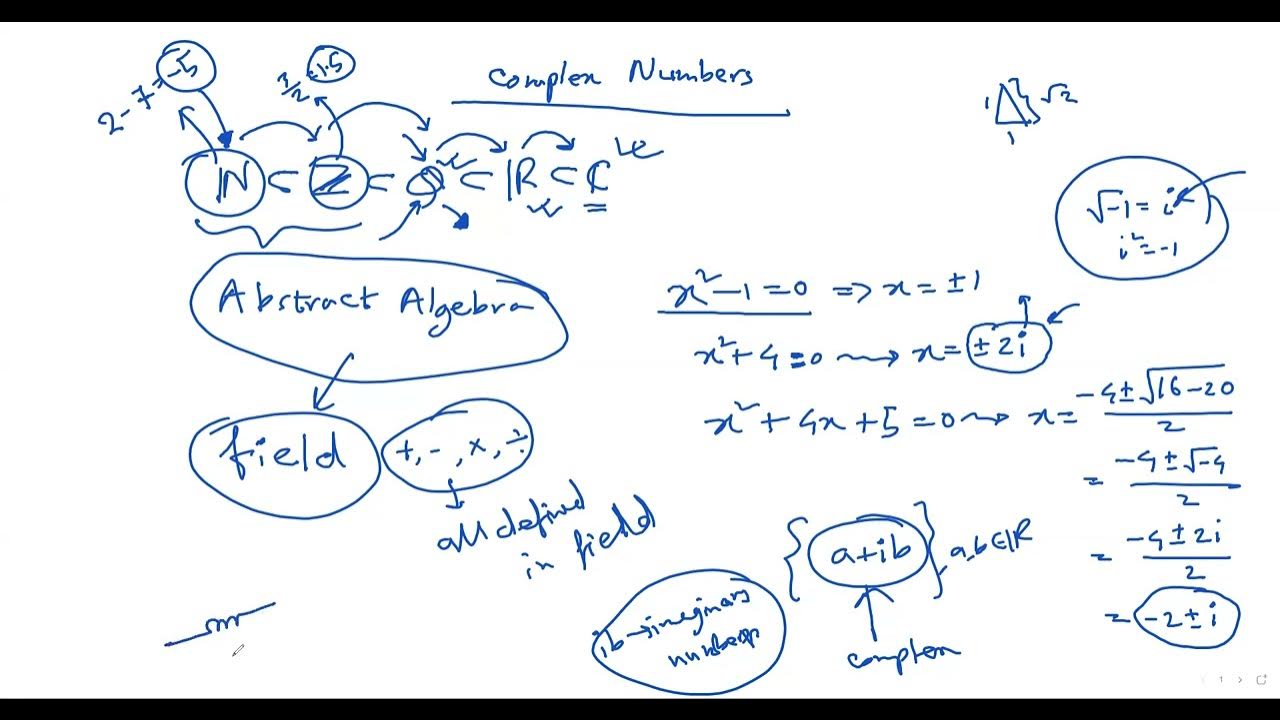 Complex Numbers
2-7=-5
3/2=1.5
ℕ ⊂ ℤ ⊂ ℚ ⊂ ℝ ⊂ ℂ
1
1
√2
√-1 = i
i²=-1
Abstract Algebra
field
+, -, x, ÷
all defined
in field
x²-1=0 => x=±1
x²+4=0 ⇝ x=±2i
x²+4x+5=0 ⇝ x= (-4±√16-20)/2
= (-4±√-4)/2
= (-4±2i)/2
= -2±i
{a+ib}, a,b∈ℝ
complex
ib→imaginary
number
1